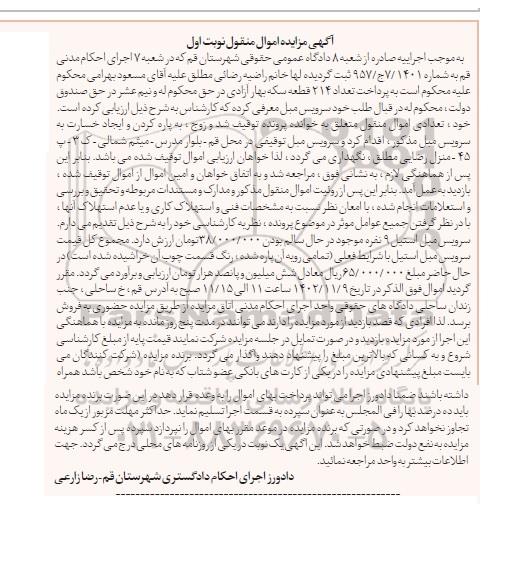 آگهی مزایده اموال منقول نوبت اول
به موجب اجراییه صادره از شعبه ۸ دادگاه عمومی حقوقی شهرستان قم که در شعبه ۷ اجرای احکام مدنی
قم به شماره ۱۴۰۱ /۷ج/۹۵۷ ثبت گردیده لها خانم راضیه رضائی مطلق علیه آقای مسعود بهرامی محکوم
علیه محکوم است به پرداخت تعداد ۲۱۴ قطعه سکه بهار آزادی در حق محکوم له و نیم عشر در حق صندوق
دولت ، محکوم له در قبال طلب خود سرویس مبل معرفی کرده که کارشناس به شرح ذیل ارزیابی کرده است.
خود ، تعدادی اموال منقول متعلق به خوانده پرونده توقیف شد و زوج ، به پاره کردن و ایجاد خسارت به
سرویس مبل مذکور ، اقدام کرد و سرویس مبل توقیفی در محل قم - بلوار مدرس - میثم شمالی - ک ۳ - پ
۴۵ - منزل رضایی مطلق ، نگهداری می گردد ، لذا خواهان ارزیابی اموال توقیف شده می باشد. بنابر این
پس از هماهنگی لازم ، به نشانی فوق ، مراجعه شد و به اتفاق خواهان و امین اموال از اموال توقیف شده ،
بازدید به عمل آمد. بنابر این پس از روئیت اموال منقول مذکور و مدارک و مستندات مربوطه و تحقیق و بررسی
و استعلامات انجام شده ، با امعان نظر نسبت به مشخصات فنی و استهلاک کاری و یا عدم استهلاک آنها ،
با در نظر گرفتن جمیع عوامل موثر در موضوع پرونده ، نظریه کارشناسی خود را به شرح ذیل تقدیم می دارم.
سرویس مبل استیل ۹ نفره موجود در حال سالم بودن ۳۸/۰۰۰/۰۰۰ تومان ارزش دارد. مجموع کل قیمت
سرویس مبل استیل با شرایط فعلی (تمامی رویه آن پاره شده ، رنگ قسمت چوب آن خراشیده شده است) در
حال حاضر مبلغ ۶۵/۰۰۰/۰۰۰ ریال معادل شش میلیون و پانصد هزار تومان ارزیابی و برآورد می گردد. مقرر
گردید اموال فوق الذکر در تاریخ ۱۴۰۲/۱۱/۹ ساعت ۱۱ الی ۱۱/۱۵ صبح به آدرس قم ، خ ساحلی ، جنب
زندان ساحلی دادگاه های حقوقی واحد اجرای احکام مدنی اتاق مزایده از طریق مزایده حضوری به فروش
برسد. لذا افرادی که قصد بازدید از مورد مزایده را دارند می توانند در مدت پنج روز مانده به مزایده با هماهنگی
این اجرا از مورد مزایده بازدید و در صورت تمایل در جلسه مزایده شرکت نمایند قیمت پایه از مبلغ کارشناسی
شروع و به کسانی که بالاترین مبلغ را پیشنهاد دهند واگذار می گردد. برنده مزایده (شرکت کنندگان می
بایست مبلغ پیشنهادی مزایده را در یکی از کارت های بانکی عضو شتاب که به نام خود شخص باشد همراه
داشته باشند) ضمنا دادورز اجرا می تواند پرداخت بهای اموال را به وعده قرار دهد در این صورت برنده مزایده
باید ده درصد بها را فی المجلس به عنوان سپرده به قسمت اجرا تسلیم نماید. حداکثر مهلت مزبور از یک ماه
تجاوز نخواهد کرد و در صورتی که برنده مزایده در موعد مقرر بهای اموال را نپردازد سپرده پس از کسر هزینه
مزایده به نفع دولت ضبط خواهد شد. این آگهی یک نوبت در یکی از روزنامه های محلی درج می گردد. جهت
اطلاعات بیشتر به واحد مراجعه نمائید.
دادورز اجرای احکام دادگستری شهرستان قم - رضا زارعی